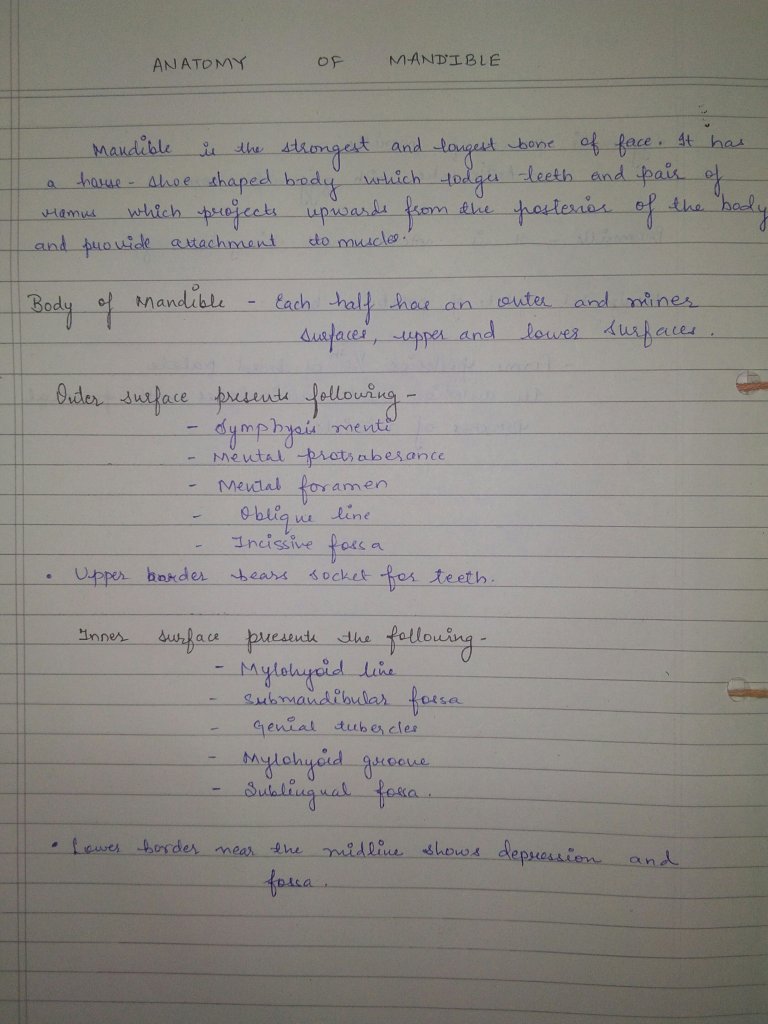 ANATOMY OF MANDIBLE
Mandible is the strongest and longest bone of face. It has
a horse-shoe shaped body which lodges teeth and pair of
ramus which projects upwards from the posterior of the body
and provide attachment to muscles.
Body of Mandible - Each half has an outer and inner
surfaces, upper and lower surfaces.
Outer surface presents following -
- Symphysis menti
- Mental protraberance
- Mental foramen
- Oblique line
- Incissive fossa
• Upper border bears socket for teeth.
Inner surface presents the following -
- Mylohyoid line
- Submandibular fossa
- Genial tubercles
- Mylohyoid groove
- Sublingual fossa.
• Lower border near the midline shows depression and
fossa.